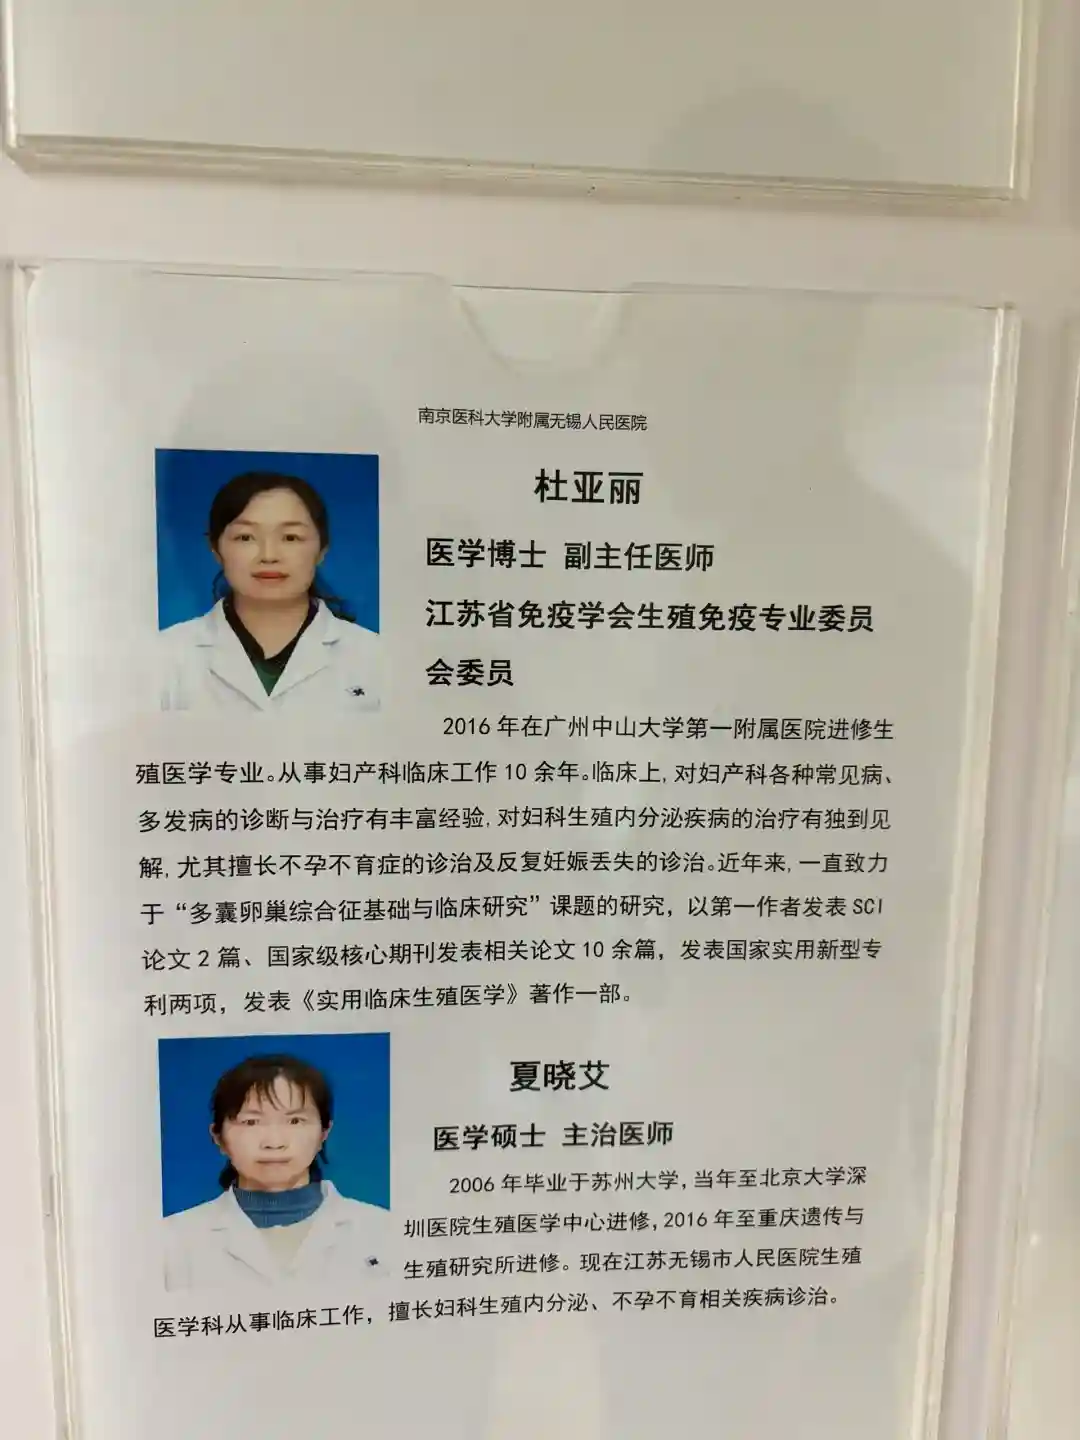 南京医科大学附属无锡人民医院
杜亚丽
医学博士 副主任医师
江苏省免疫学会生殖免疫专业委员
会委员
2016 年在广州中山大学第一附属医院进修生
殖医学专业。从事妇产科临床工作 10 余年。临床上, 对妇产科各种常见病、
多发病的诊断与治疗有丰富经验, 对妇科生殖内分泌疾病的治疗有独到见
解, 尤其擅长不孕不育症的诊治及反复妊娠丢失的诊治。近年来, 一直致力
于“多囊卵巢综合征基础与临床研究”课题的研究，以第一作者发表 SCI
论文 2 篇、国家级核心期刊发表相关论文 10 余篇，发表国家实用新型专
利两项，发表《实用临床生殖医学》著作一部。
夏晓艾
医学硕士 主治医师
2006 年毕业于苏州大学, 当年至北京大学深
圳医院生殖医学中心进修, 2016 年至重庆遗传与
生殖研究所进修。现在江苏无锡市人民医院生殖
医学科从事临床工作，擅长妇科生殖内分泌、不孕不育相关疾病诊治。